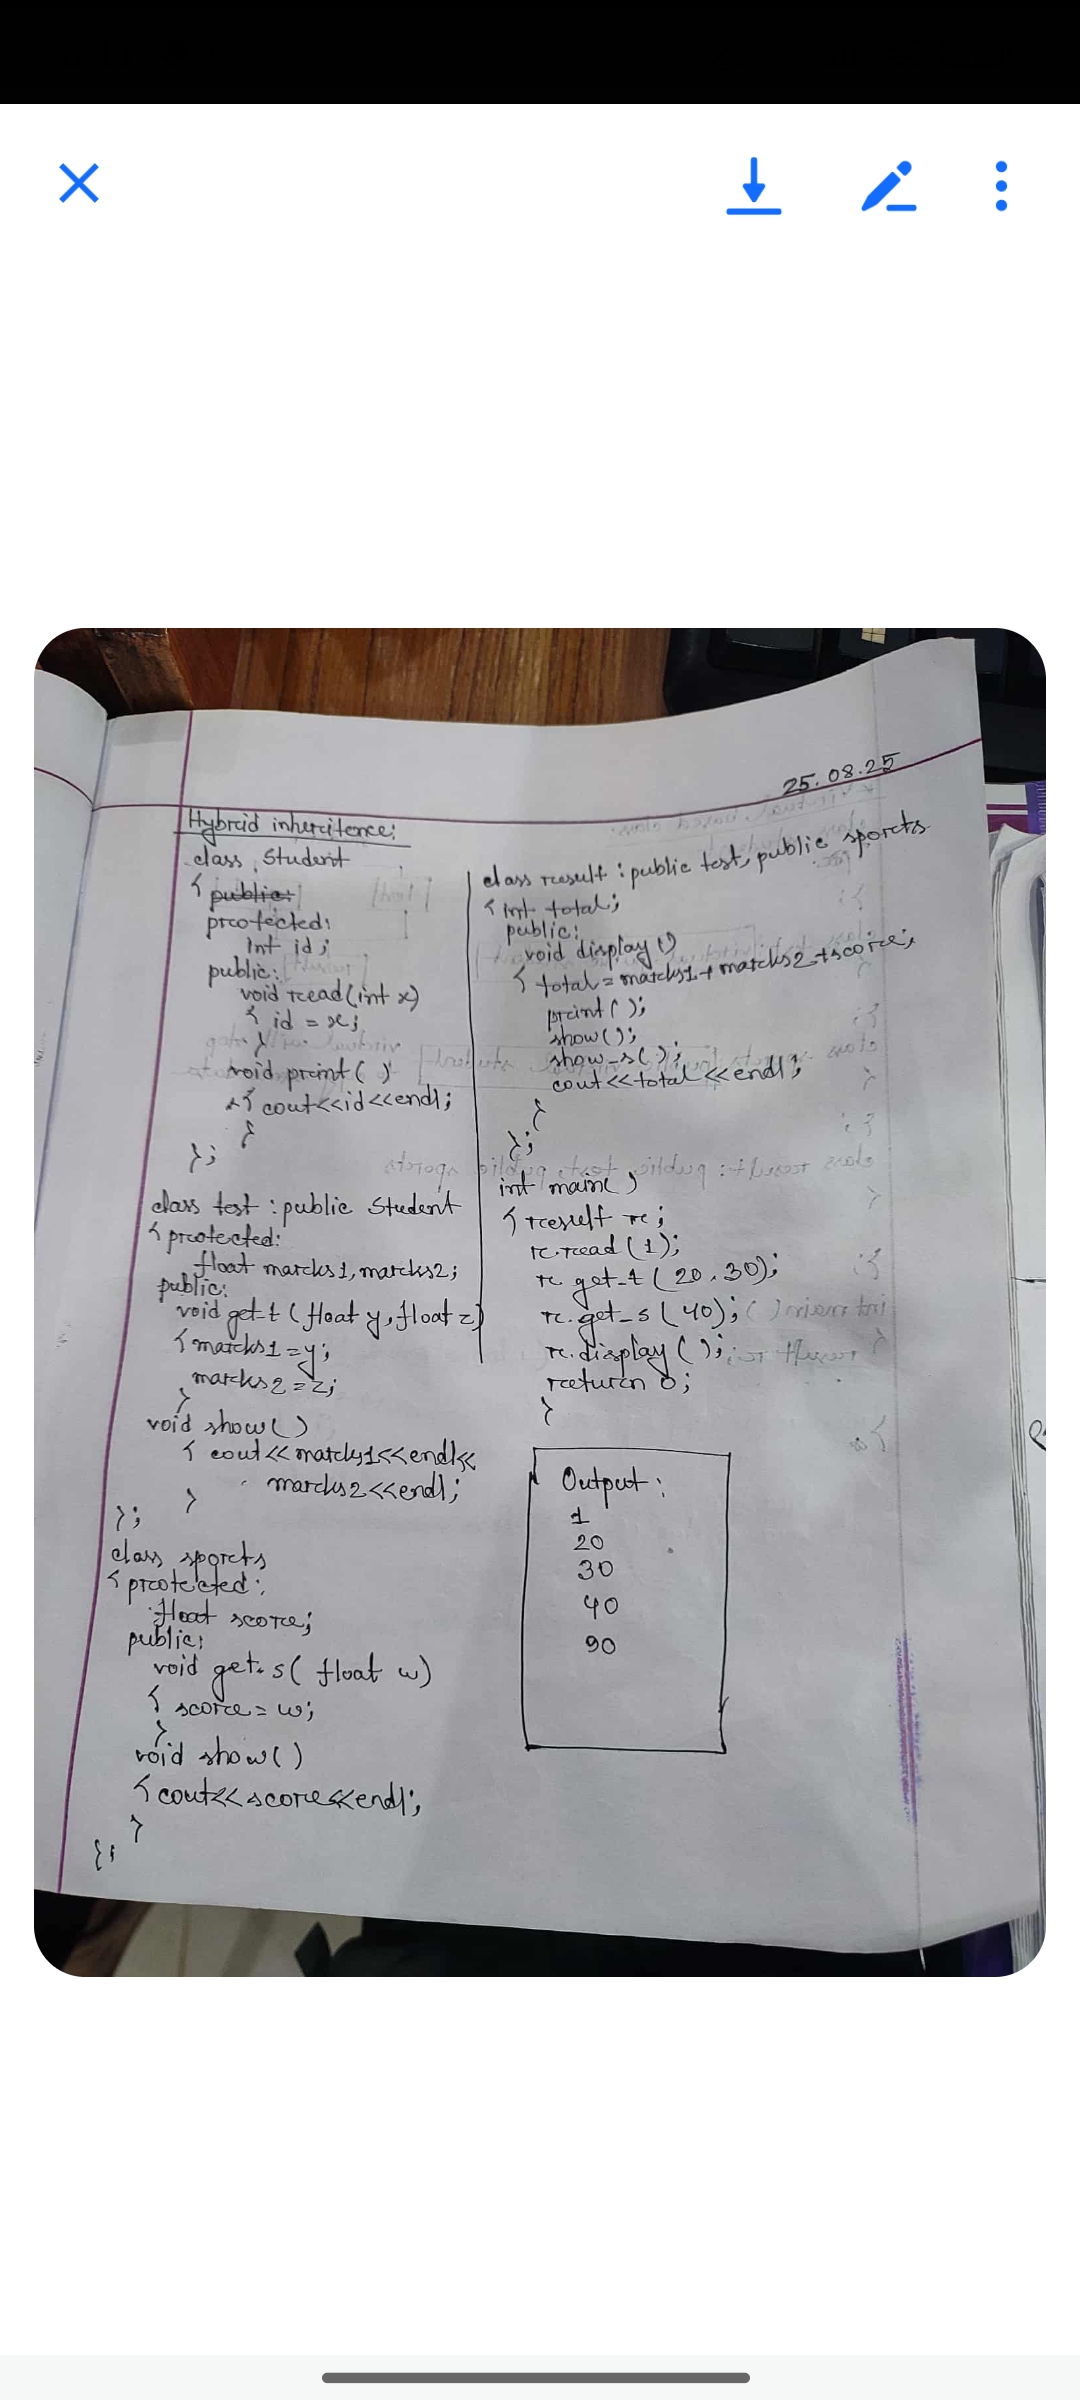 25.08.25
Hybrid inheritence:
class Student
{ public:
protected:
int id;
public:
void read(int x)
{ id = x;
}
void print( )
{ cout<<id<<endl;
}
};
class test : public Student
{ protected:
float marks1, marks2;
public:
void get_t ( float y, float z)
{ marks1 = y;
marks2 = z;
}
void show( )
{ cout<< marks1<<endl<<
marks2<<endl;
}
};
class sports
{ protected:
float score;
public:
void get_s( float w)
{ score = w;
}
void show( )
{ cout<<score<<endl;
}
};
class result : public test, public sports
{ int total;
public:
void display()
{ total = marks1 + marks2 + score;
print( );
show( );
show_s( );
cout<<total<<endl;
}
};
int main( )
{ result r;
r.read(1);
r. get_t ( 20, 30);
r. get_s ( 40);
r. display ( );
return 0;
}
Output:
1
20
30
40
90